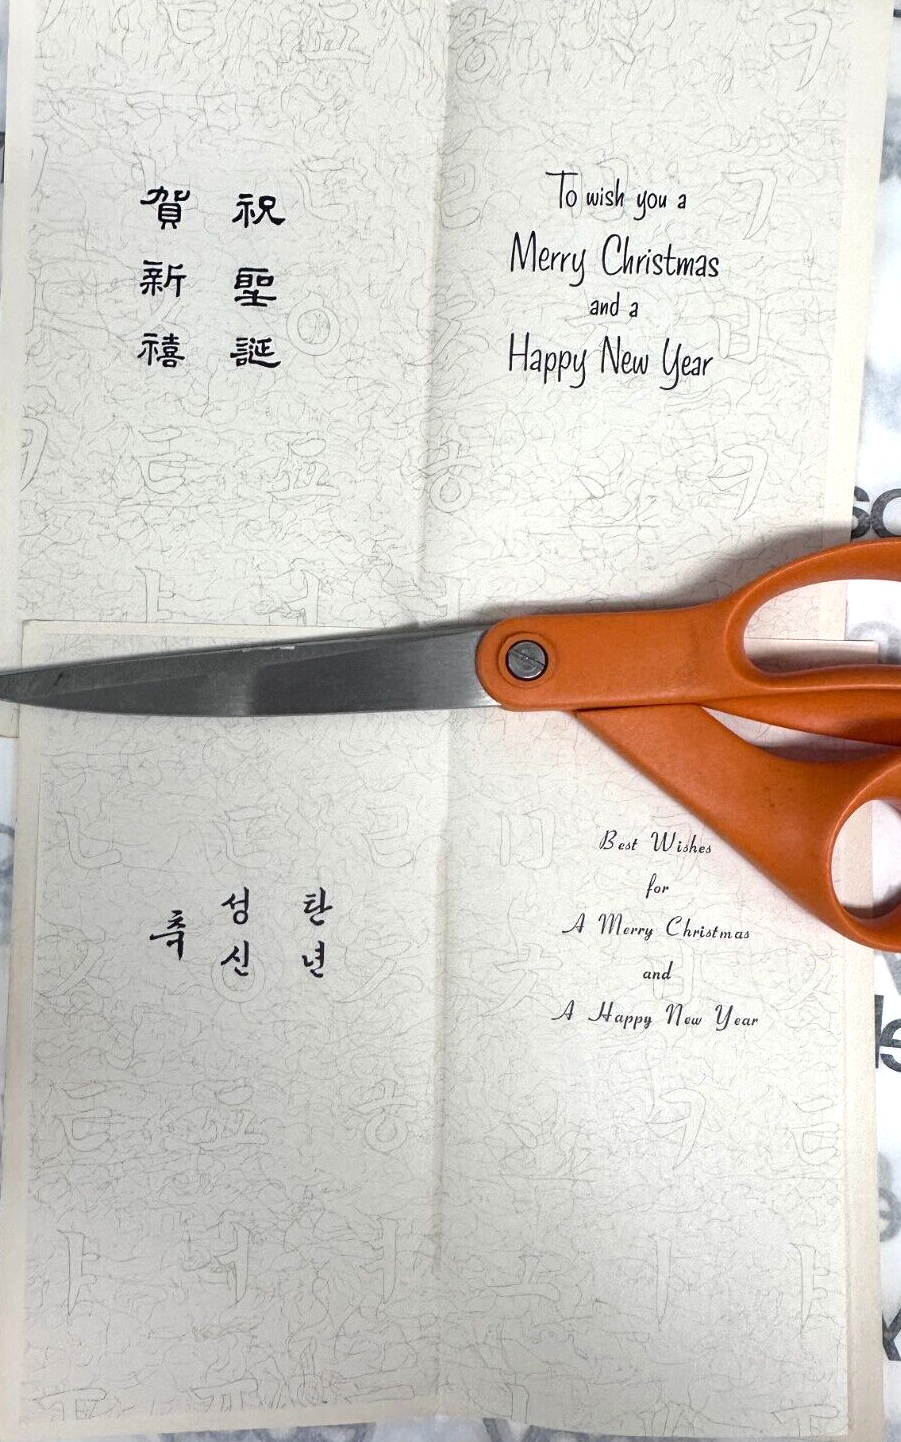 祝聖誕
賀新禧
To wish you a
Merry Christmas
and a
Happy New Year
축 성탄
신년
Best Wishes
for
A Merry Christmas
and
A Happy New Year